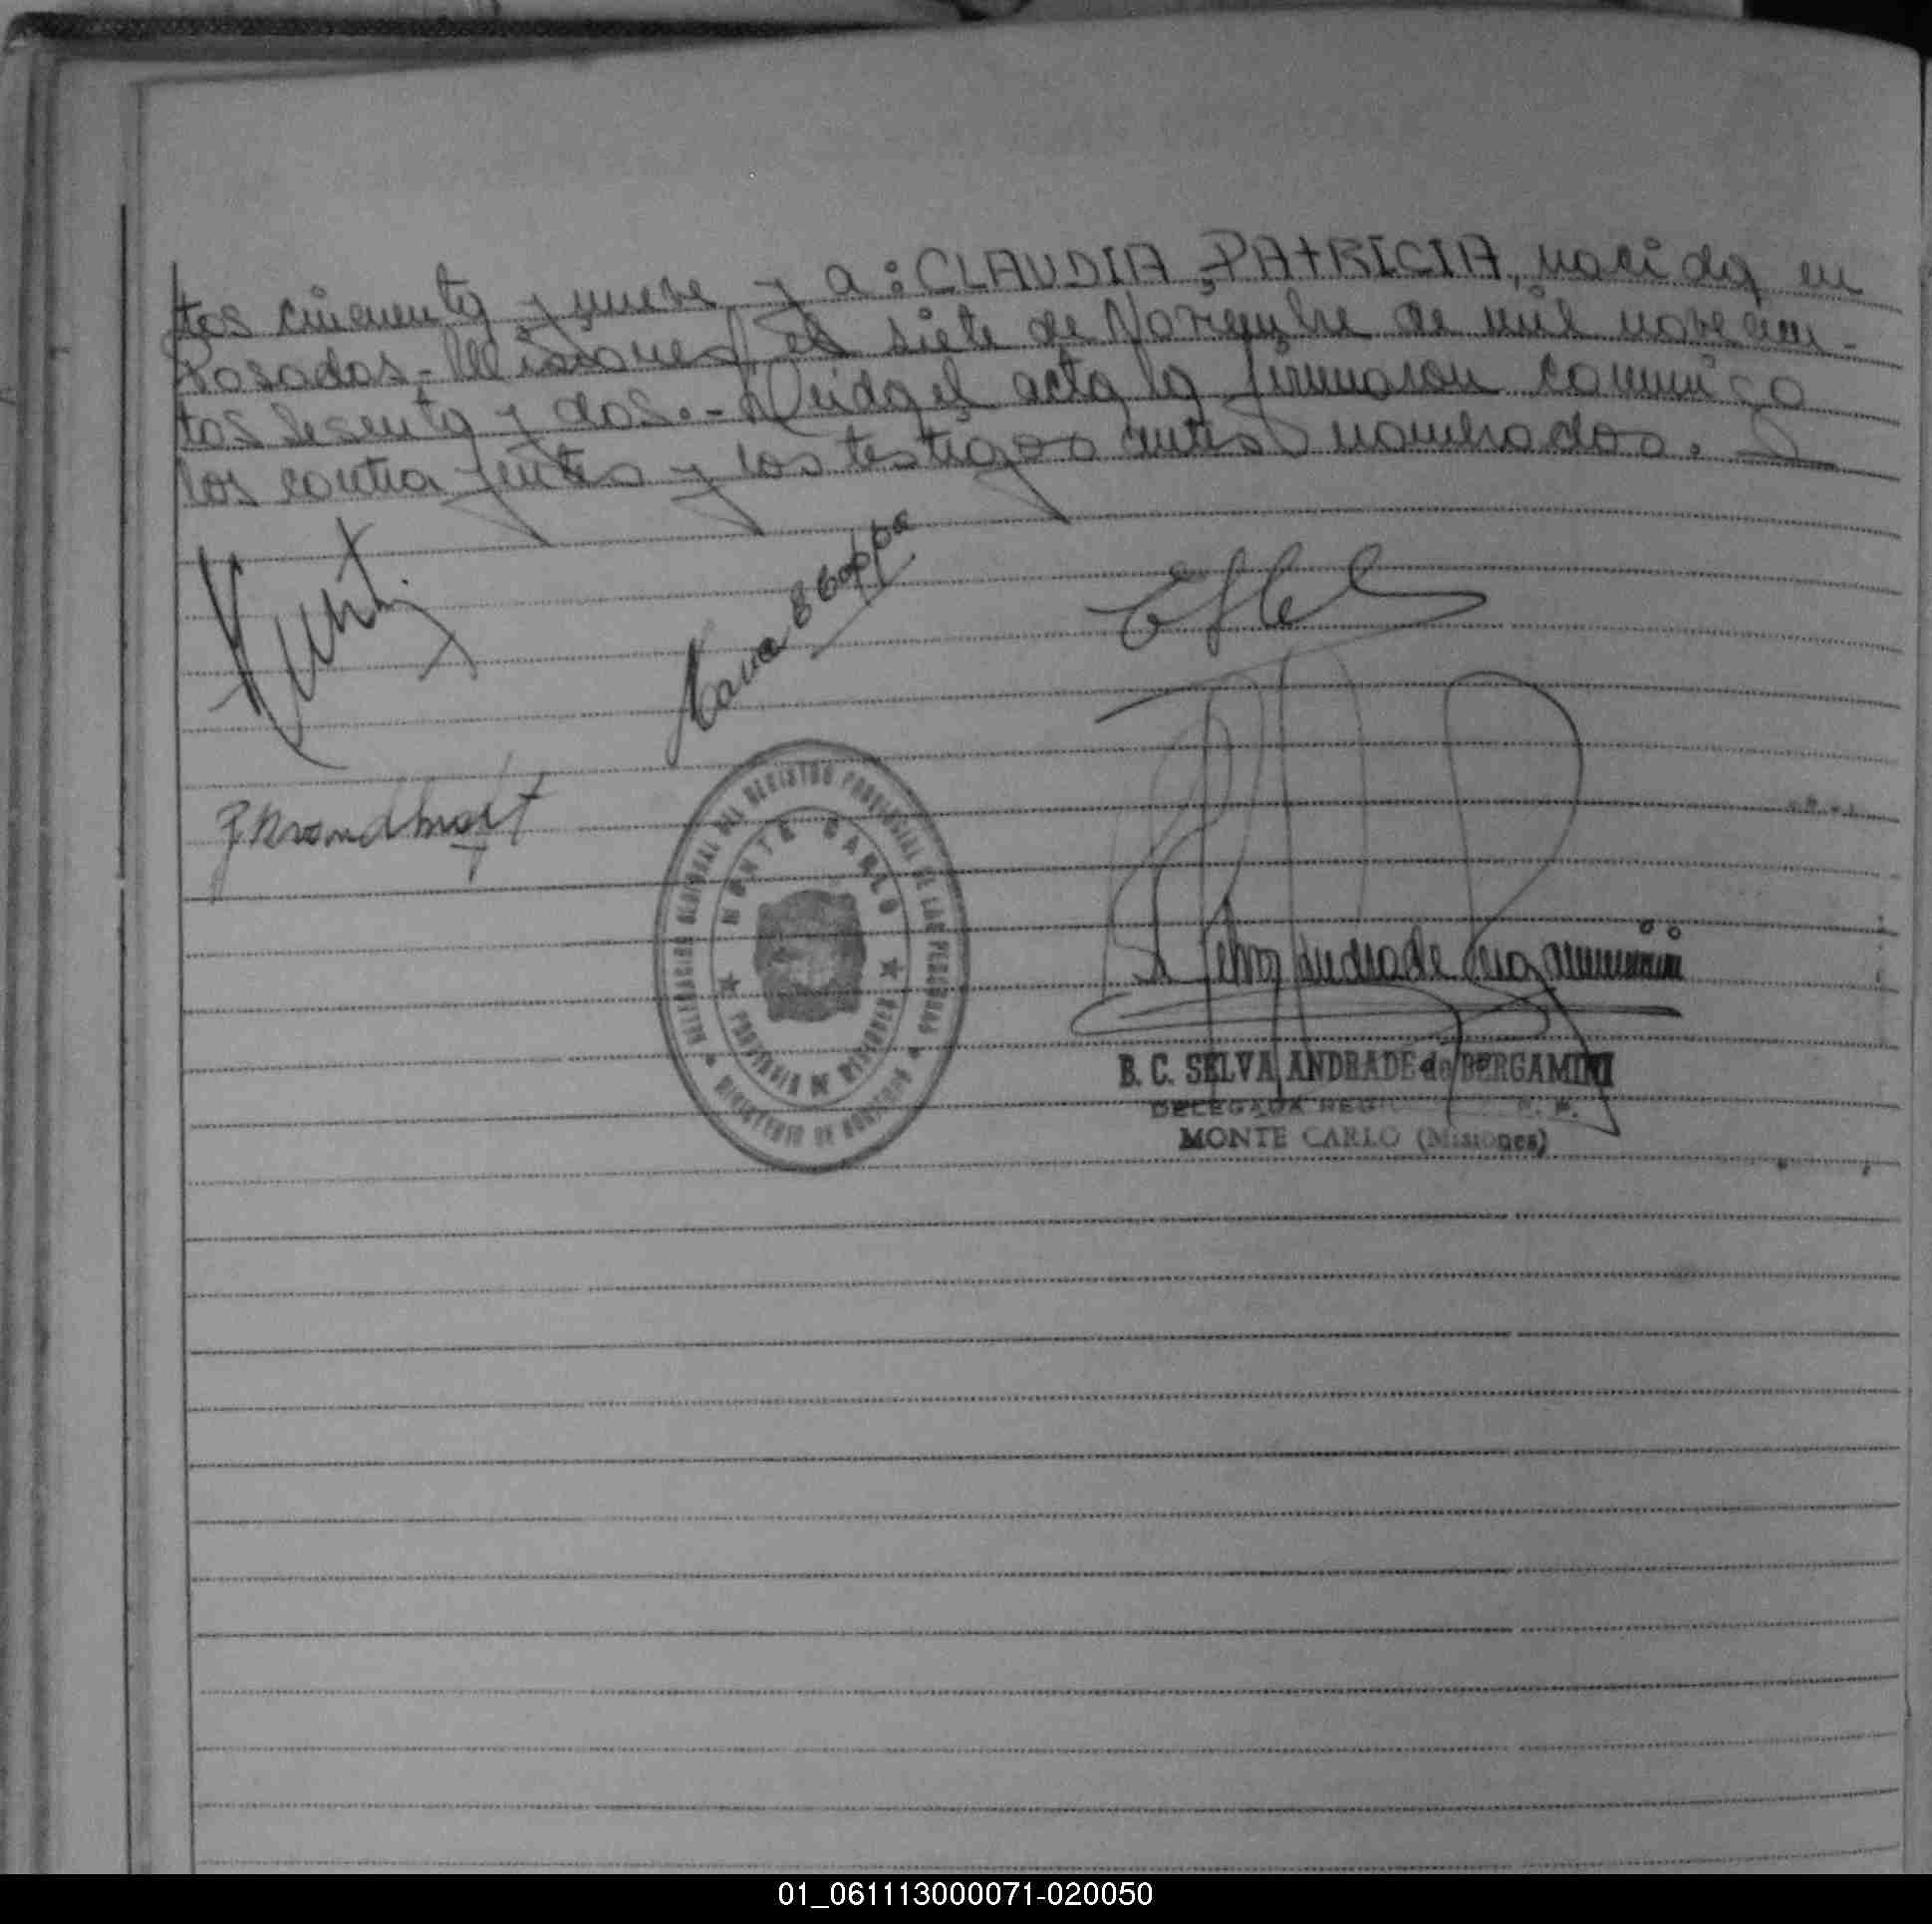 tos cincuenta y nueve y a: CLAUDIA PATRICIA, nacida en
Posadas - Misiones el siete de Noviembre de mil novecien-
tos sesenta y dos.- Leida el acta la firmaron conmigo
los contrayentes y los testigos antes nombrados.
J. Brandhorst
DELEGACION REGIONAL DEL REGISTRO PROVINCIAL DE LAS PERSONAS
MONTE CARLO
PROVINCIA DE MISIONES
MINISTERIO DE GOBIERNO
Selva Andrade Bergamini
B. C. SELVA ANDRADE de BERGAMINI
DELEGADA
MONTE CARLO (Misiones)
01_061113000071-020050